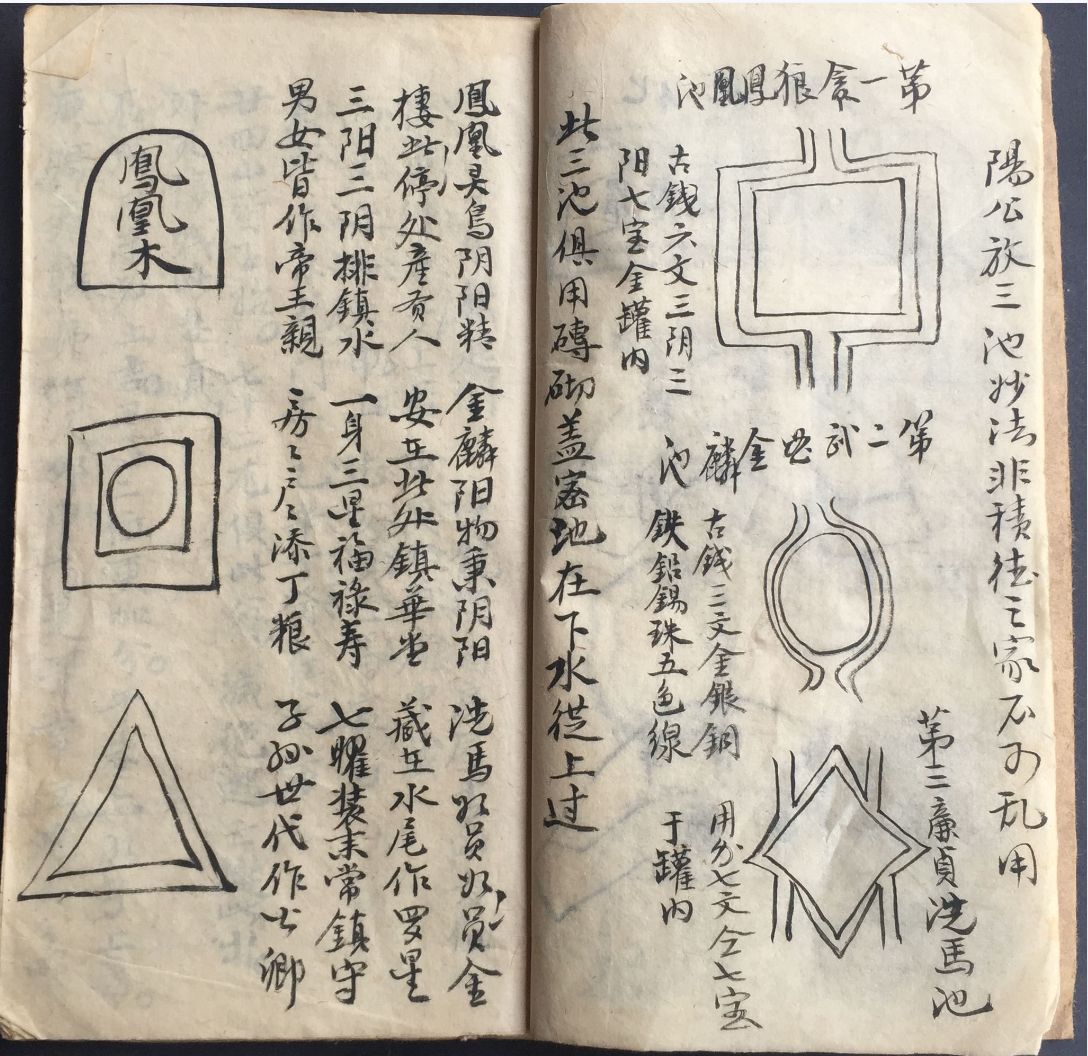 陽公放三池妙法非積德之家不可乱用
第一貪狼鳳凰池
古錢六文三阴三
阳七宝金罐内
第二武曲金麟池
古錢三文金銀銅
鉄鉛錫珠五色線
第三廉貞洗馬池
用分七文仝七宝
于罐内
此三池俱用磚砌盖密地在下水従上过
鳳凰灵鸟阴阳精
棲此停处産贵人
三阳三阴排鎮水
男女皆作帝王親
金麟阳物秉阴阳
安在此处鎮華堂
一身三星福禄寿
房〻户〻添丁粮
洗馬必员必员金
藏在水尾作罗星
七曜装来常鎮守
子孙世代作公卿
鳳凰木